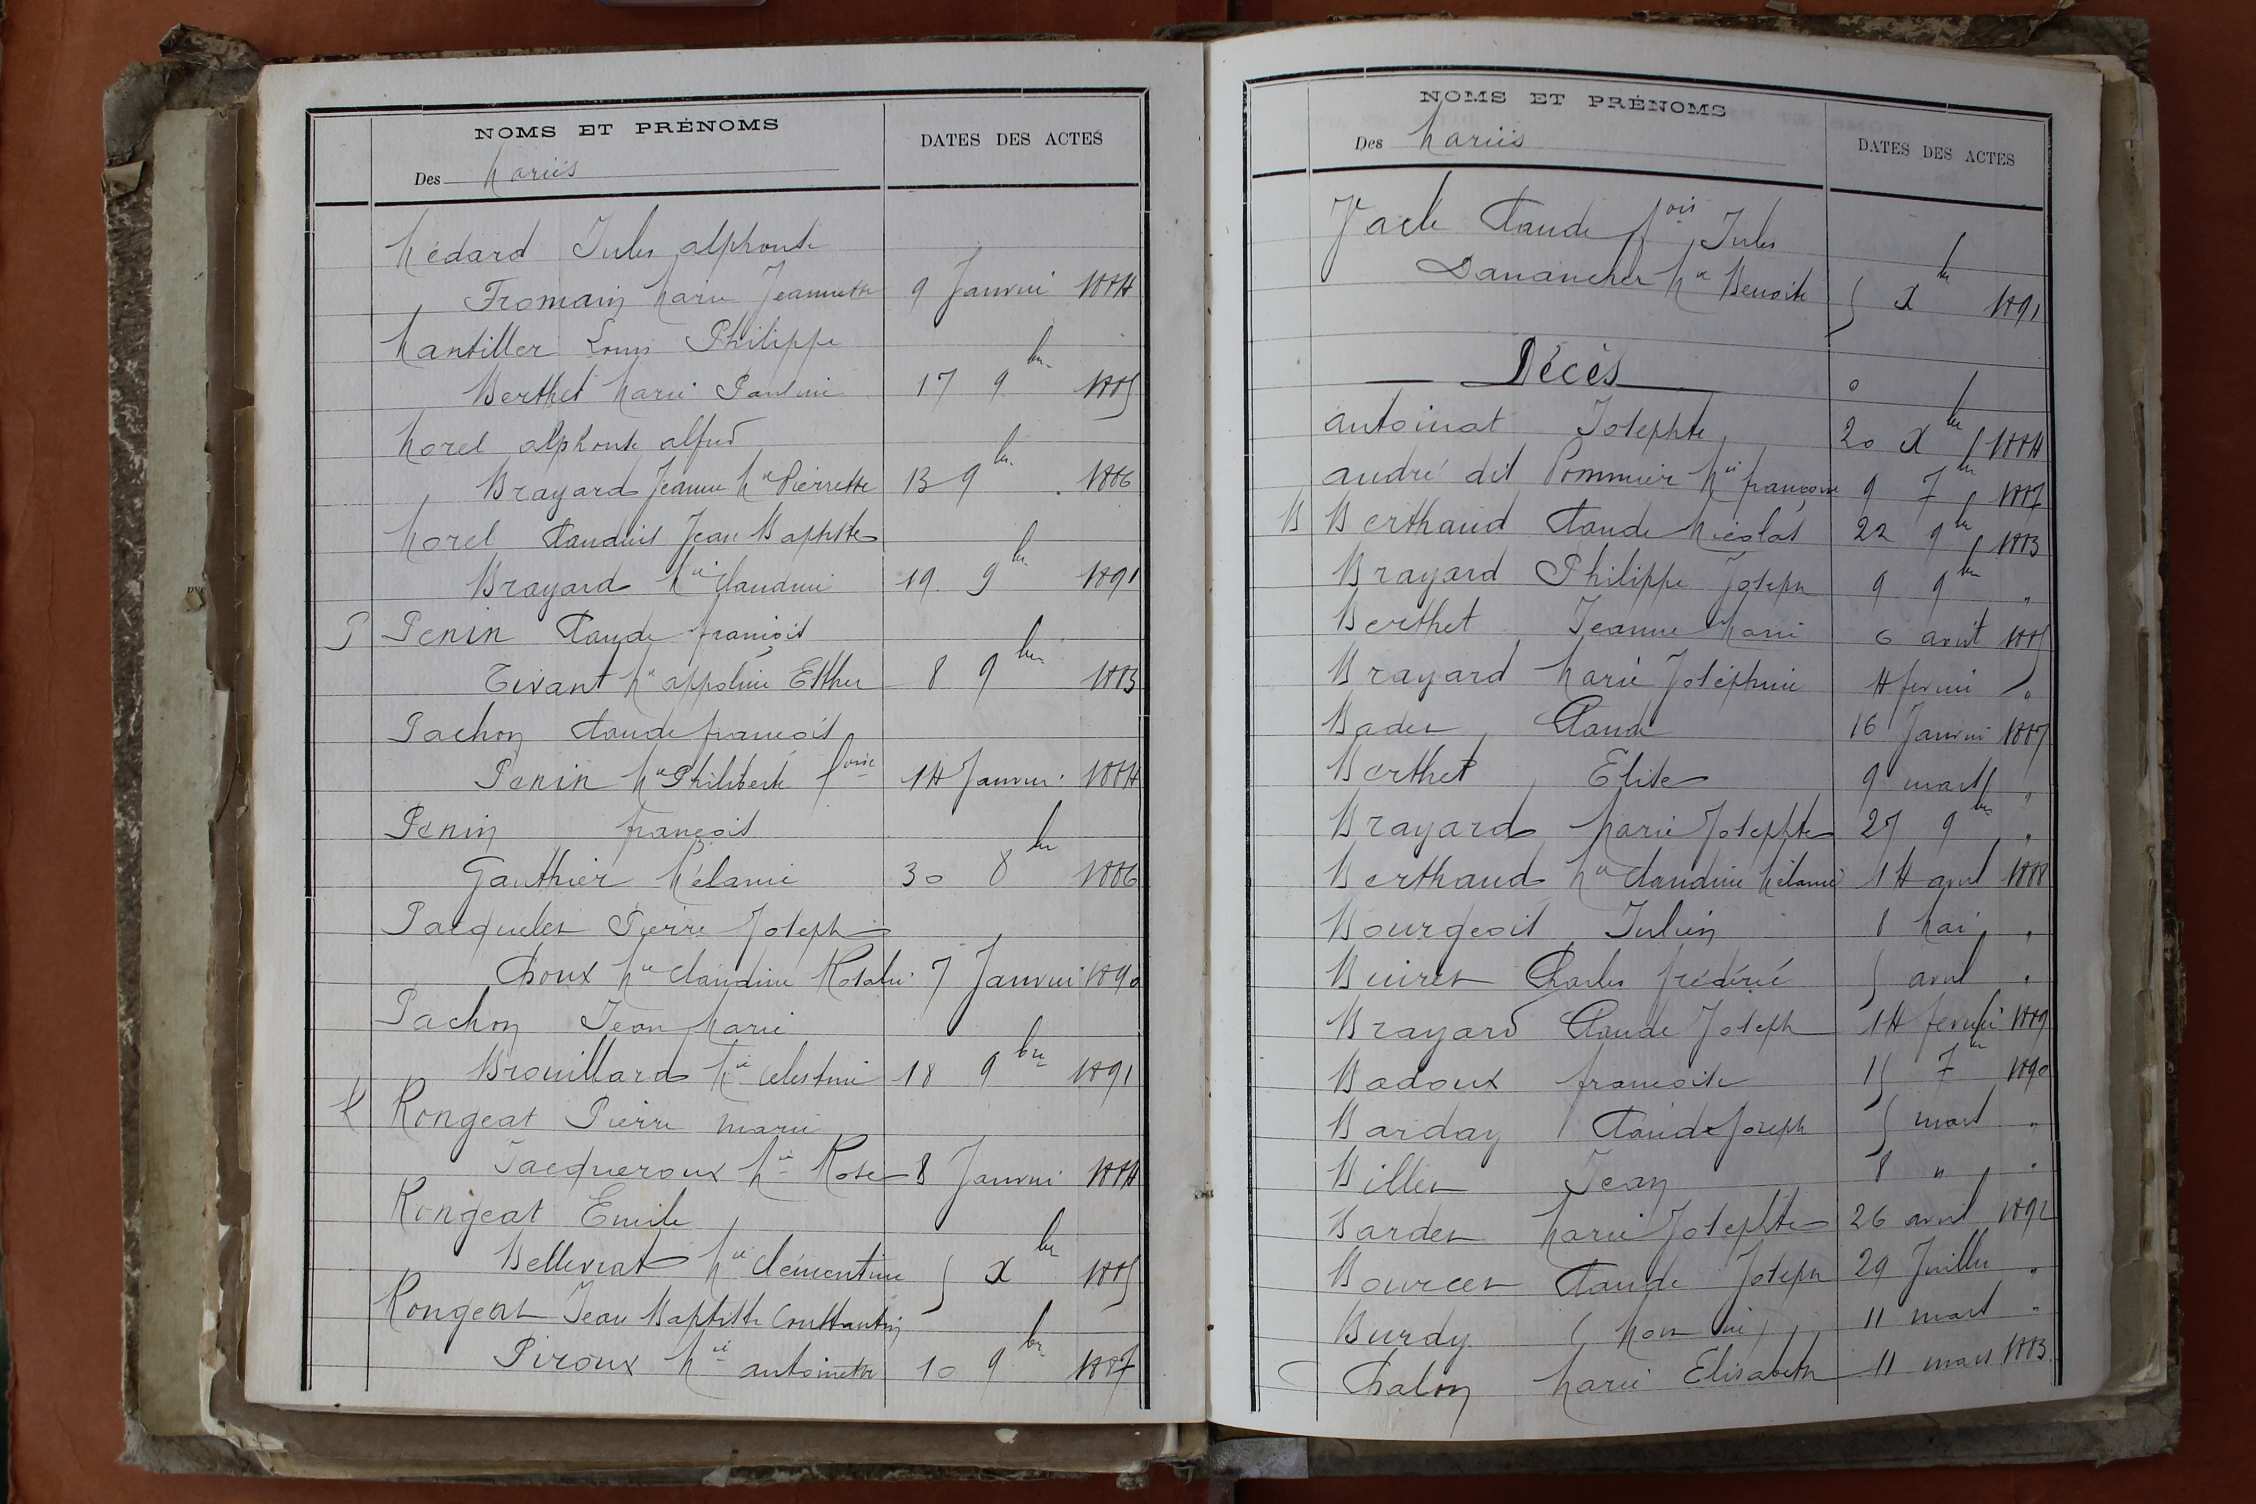 NOMS ET PRÉNOMS
DATES DES ACTES
Des Mariés
Médard Jules alphonse
Fromain Marie Jeannette 9 Janvier 1884
Mantiller Louis Philippe
Berthet Marie Pauline 17 9bre 1885
Morel alphonse alfred
Brayard Jeanne Mie Pierrette 13 9bre 1886
Morel Claudius Jean Baptiste
Brayard Mie Claudine 19 9bre 1891
P Penin Claude françois
Tivant Mie appoline Esther 8 9bre 1883
Pachon Claude françois
Penin Mie Philiberte foise 14 Janvier 1884
Penin françois
Gauthier Mélanie 30 8bre 1886
Pacquelet Pierre Joseph
Choux Mie Claudine Rosalie 7 Janvier 1890
Pachon Jean Marie
Brouillard Mie Celestine 18 9bre 1891
R Rongeat Pierre marie
Jacqueroux Mie Rose 8 Janvier 1884
Rongeat Emile
Bellevrat Mie Clémentine 5 Xbre 1885
Rongeat Jean Baptiste Constantin
Piroux Mie antoinette 10 9bre 1887
NOMS ET PRÉNOMS
DATES DES ACTES
Des Mariés
Claude fois Jules
Danancher Mie Benoite 5 Xbre 1891
Décès
antoinat Josephte 20 Xbre 1884
andré dit Pommier Mie françoise 9 7bre 1887
B Berthaud Claude Nicolas 22 9bre 1883
Brayard Philippe Joseph 9 9bre "
Berthet Jeanne Marie 6 avril 1885
Brayard Marie Joséphine 4 fevrier "
Badet Claude 16 Janvier 1887
Berthet Elise 9 mars "
Brayard Marie Josephte 27 9bre "
Berthaud Mie Claudine Mélanie 14 avril 1888
Bourgeois Julien 8 Mai "
Buiret Charles frédéric 5 avril "
Brayard Claude Joseph 14 fevrier 1889
Badoux françoise 15 7bre 1890
Barday Claude Joseph 5 mars "
Billet Jean 8 " "
Bardet Marie Josephte 26 avril 1892
Bourcet Claude Joseph 29 Juillet "
Burdy (Mort né) 11 mars "
C Chalon Marie Elisabeth 11 mars 1883